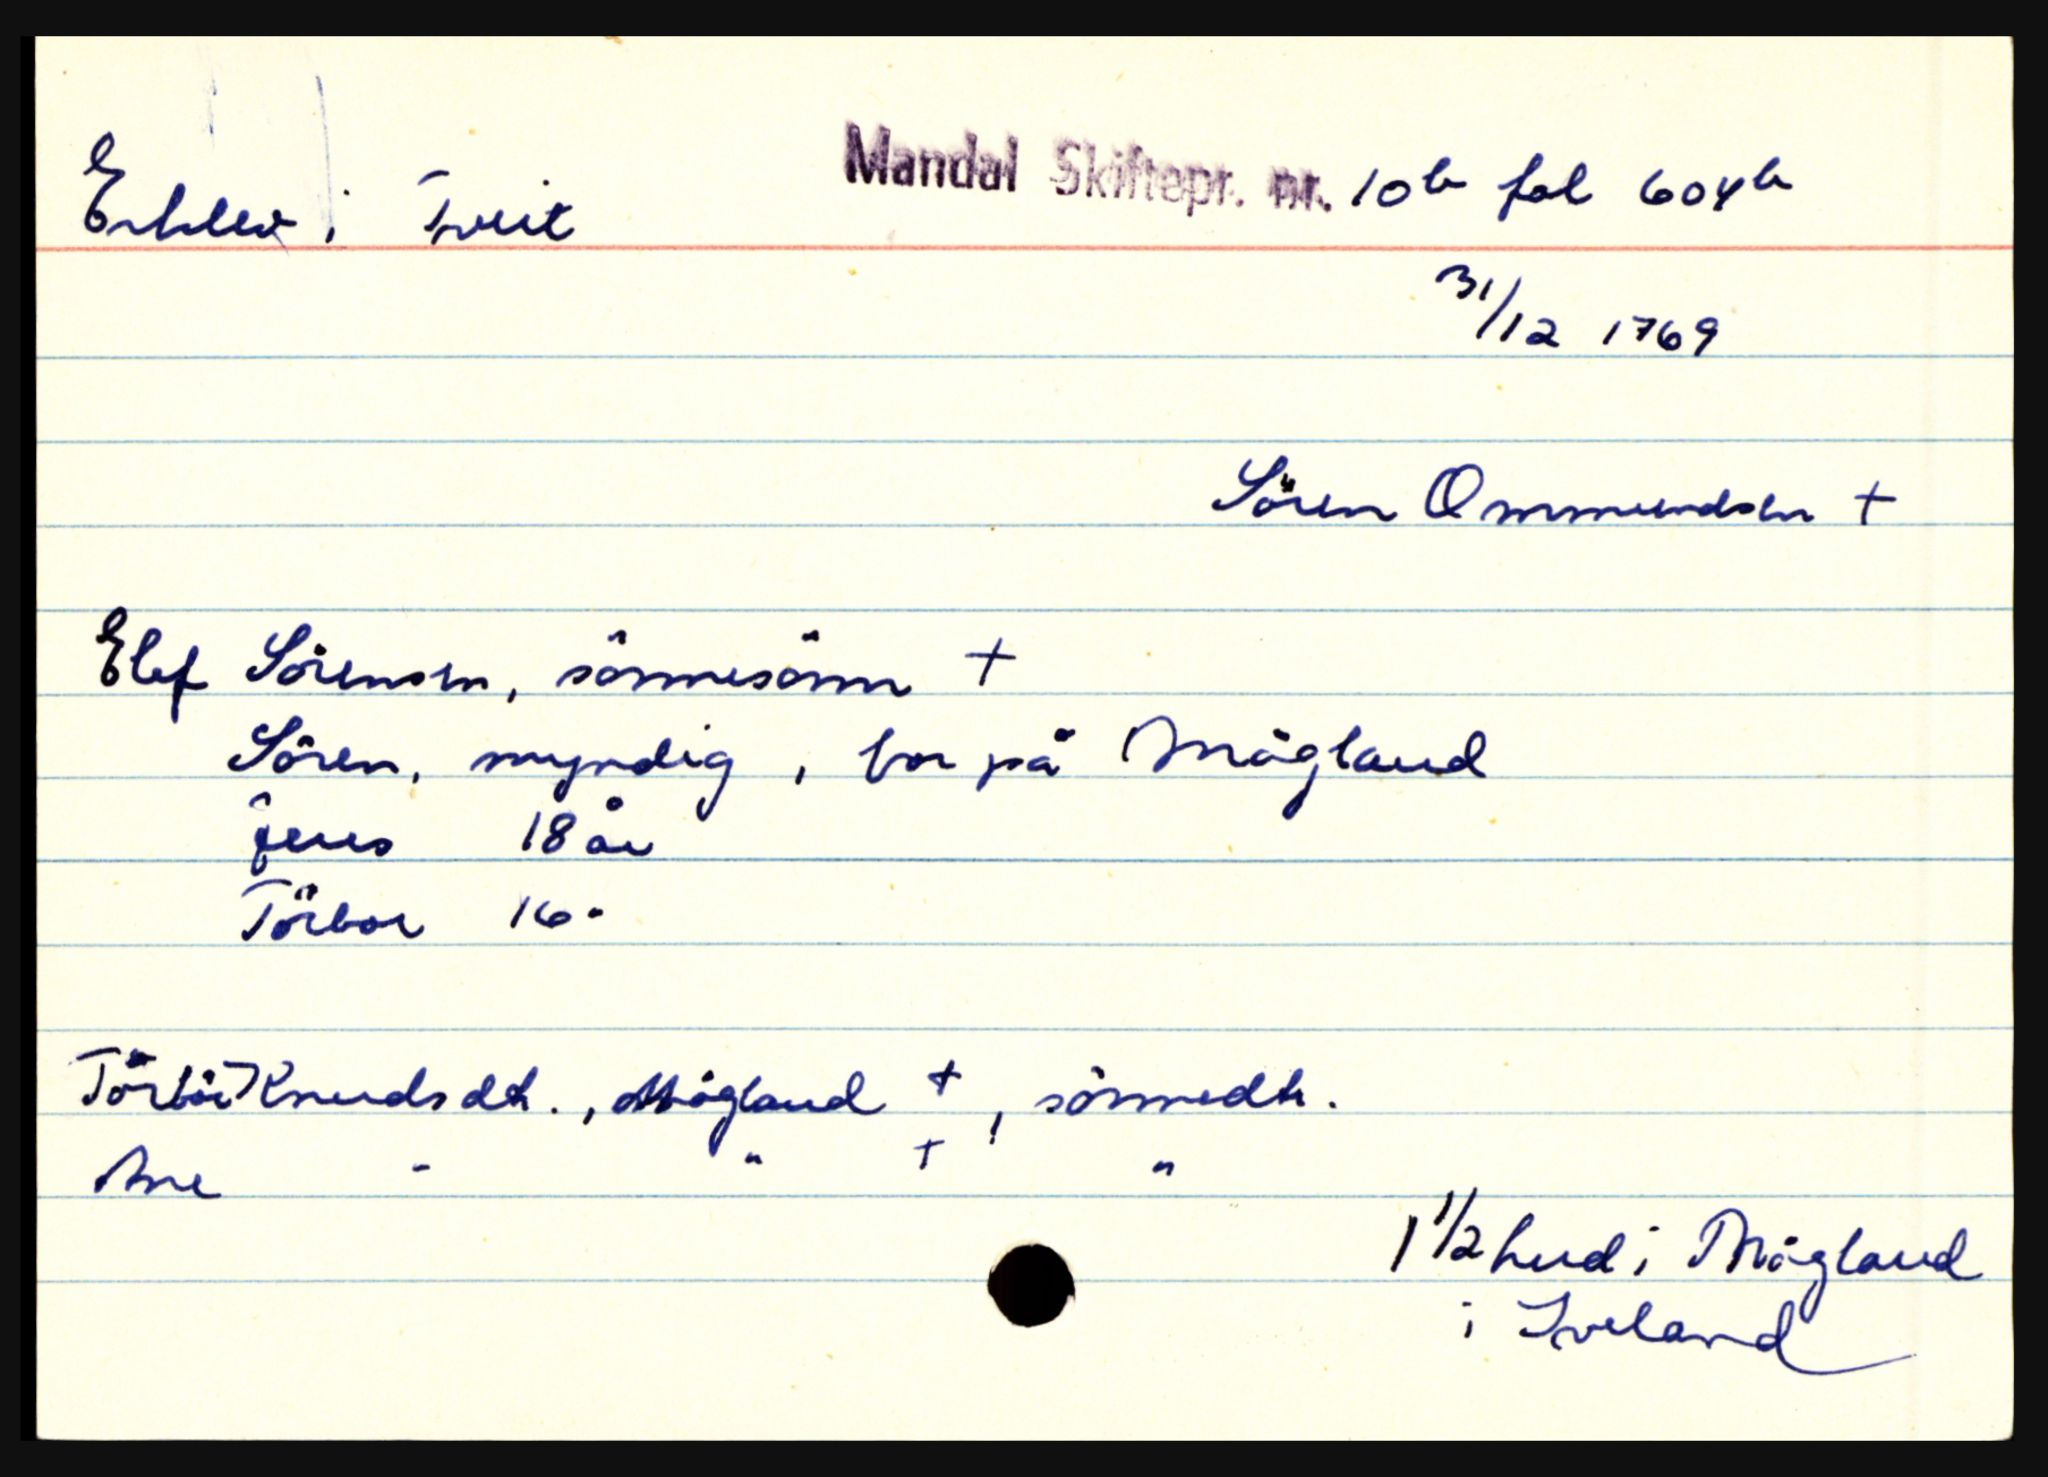 Erklev i Tveit Mandal Skiftepr. nr. 10b fol 604b
31/12 1769
Sören Ommundsen +
Elef Sörensen, sönnesönn +
Sören, myndig, bor på Mögland
Jens 18 år
Törbor 16 "
Törbör Knudsdtr., Mögland +, sönnedtr.
Ane " " + "
1 1/2 hud i Mögland
i Iveland